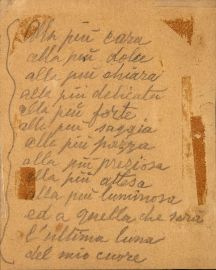 Alla più cara
alla più dolce
alla più chiara
alla più delicata
alla più forte
alla più saggia
alla più pazza
alla più preziosa
alla più attesa
alla più luminosa
ed a quella che sarà
l'ultima luna
del mio cuore